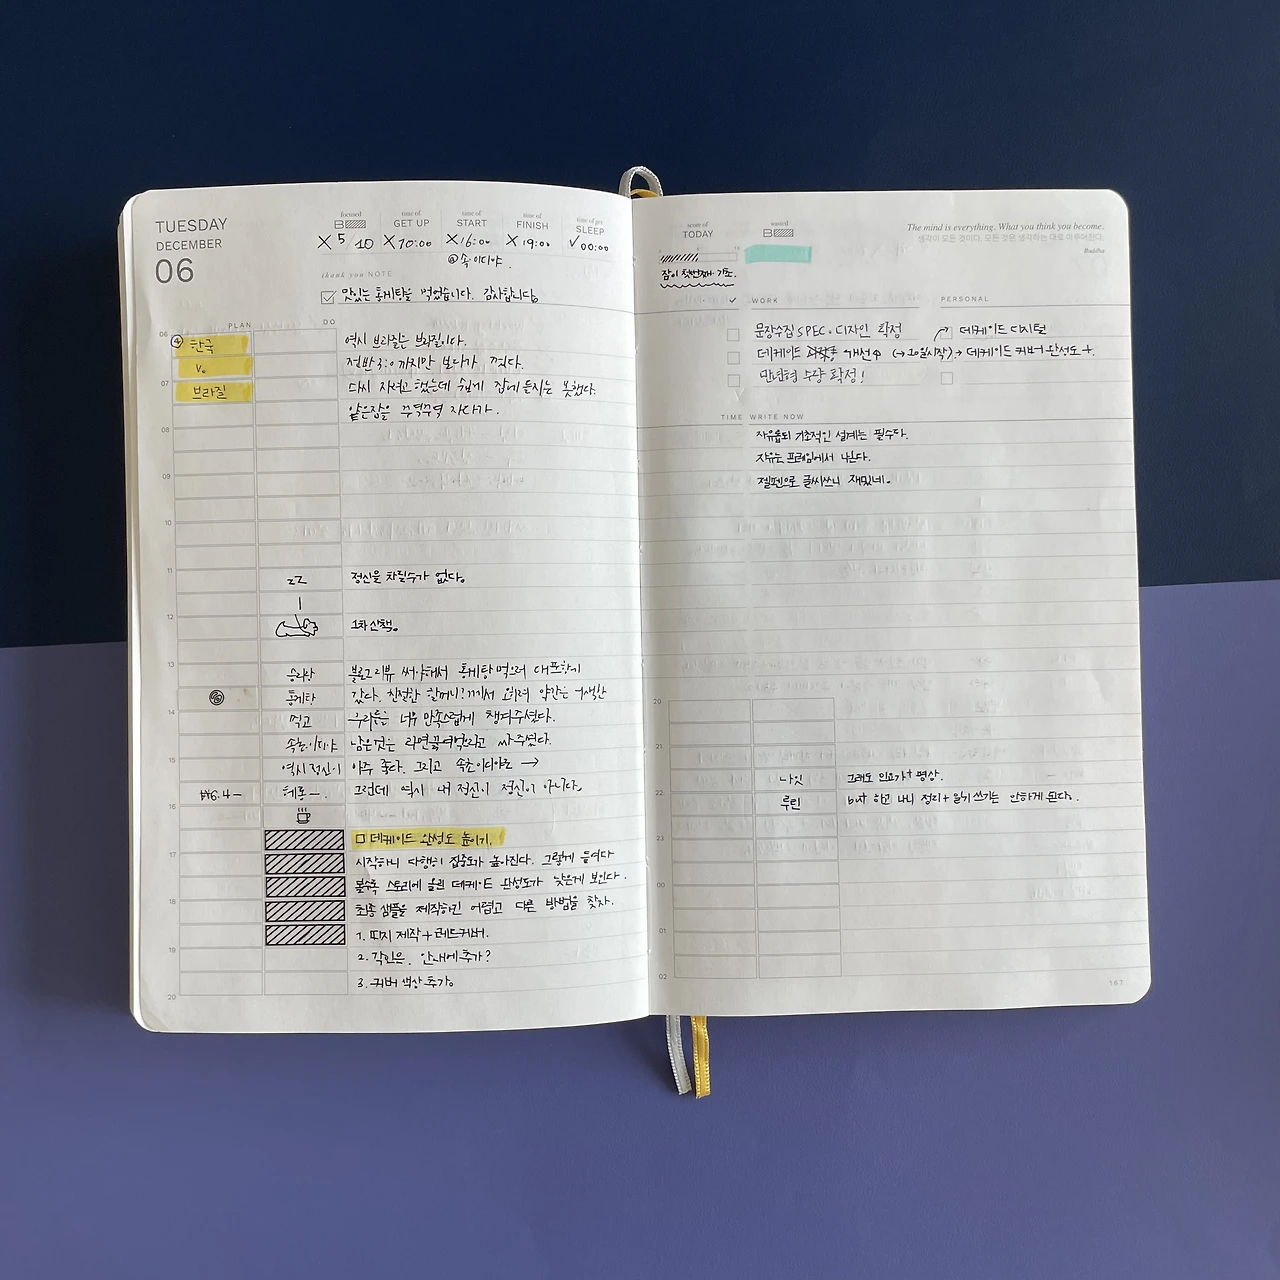 TUESDAY
DECEMBER
06
focused
B
X 5 10
time of
GET UP
X 10:00
time of
START
X 16:00
@속이디야.
time of
FINISH
X 19:00
time of get
SLEEP
✓ 00:00
thank you NOTE
맛있는 통게탕을 먹었습니다. 감사합니다.
PLAN
DO
06
④ 한국
역시 브라질은 브라질이다.
vs
전반 3:0까지만 보다가 껐다.
07
브라질
다시 자려고 했는데 쉽게 잠에 들지는 못했다.
얕은잠을 꾸역꾸역 자다가.
08
09
10
11
zz
정신을 차릴수가 없다.
12
1차산책.
13
승리상
블로그 리뷰 써야해서 통게탕 먹으러 대포항에
통게탕
갔다. 친절한 할머니께서 오히려 약간은 어색한
14
먹고
우리들은 너무 만족스럽게 챙겨주셨다.
속초이디야
남은것은 라면끓여먹으라고 싸주셨다.
15
역시 정신이
아주 좋다. 그리고 속초이디야로 →
16.4-
헤롱-.
그런데 역시 내 정신이 정신이 아니다.
16
□ 데케이드 완성도 높이기.
17
시작하니 다행히 집중도가 높아진다. 그렇게 들여다
볼수록 스토리에 올린 데케이드 완성도가 낮은게 보인다.
18
최종 샘플을 제작하긴 어렵고 다른 방법을 찾자.
1. 띠지 제작 + 레드커버.
19
2. 각인은. 안내에 추가?
3. 커버 색상 추가.
20
score of
TODAY
잠이 첫번째 기초.
wasted
B
The mind is everything. What you think you become.
생각이 모든 것이다. 모든 것은 생각하는 대로 이루어진다.
Buddha
✓
WORK
PERSONAL
문장수집 SPEC. 디자인 확정
데케이드 디지털
데케이드 개선 (→ 20일시작) → 데케이드 커버 완성도 +.
만년형 수량 확정!
TIME
WRITE NOW
자유롭되 기초적인 설계는 필수다.
자유는 프레임에서 나온다.
젤펜으로 글씨쓰니 재밌네.
20
21
나잇
그래도 인요가 + 명상.
22
루틴
but 하고 나니 정리 + 일기 쓰기는 안하게 된다.
23
00
01
02
167